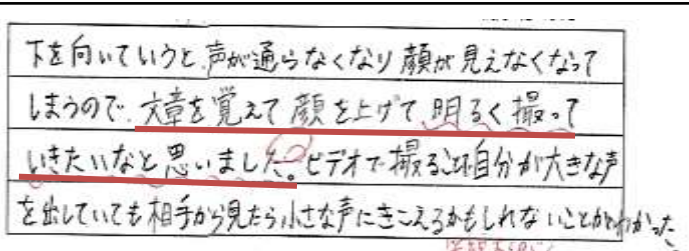 下を向いていうと、声が通らなくなり顔が見えなくなって
しまうので、文章を覚えて顔を上げて、明るく撮って
いきたいなと思いました。ビデオで撮ると自分が大きな声
を出していても相手から見たら小さな声にきこえるかもしれないことがわかった。